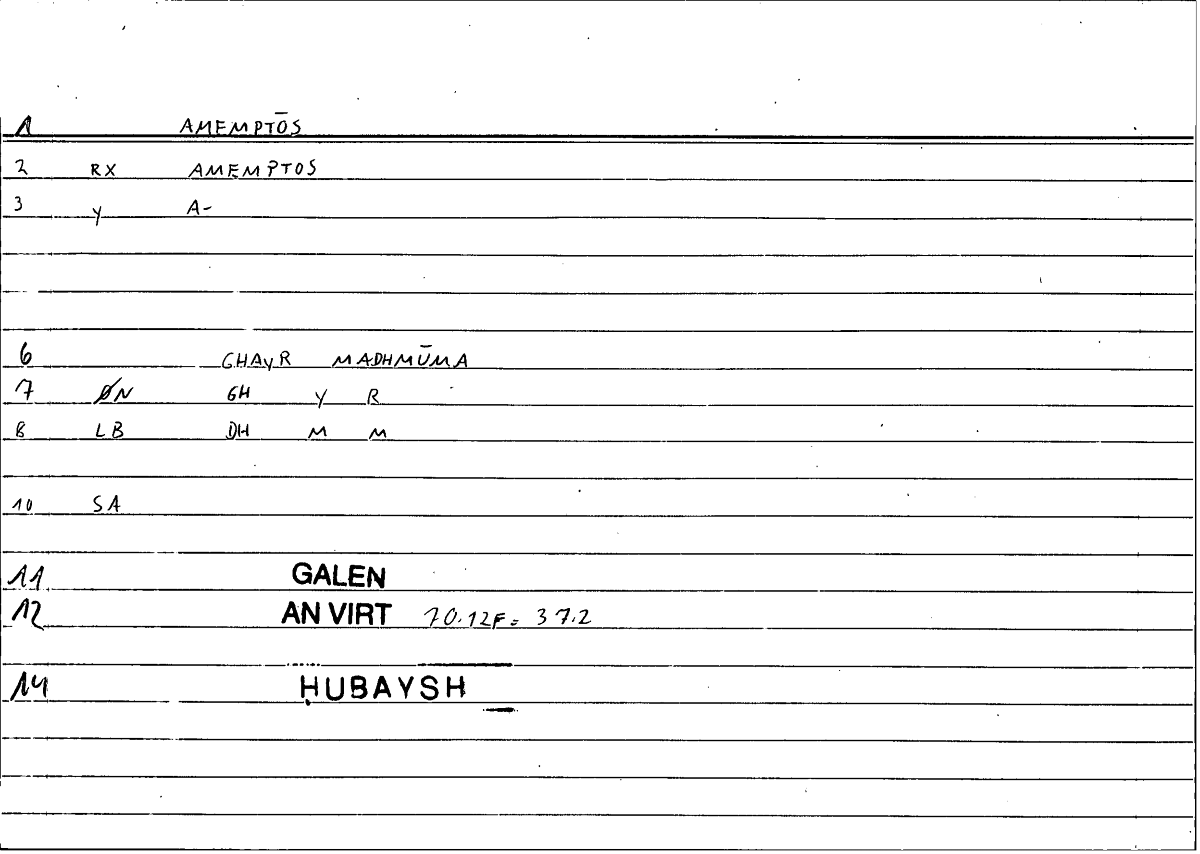 1 AMEMPTŌS
2 RX AMEMPTOS
3 Y A-
6 GHAYR MADHMŪMA
7 ØN GH Y R
8 LB DH M M
10 SA
11 GALEN
12 AN VIRT 70.12F = 37.2
14 ḤUBAYSH